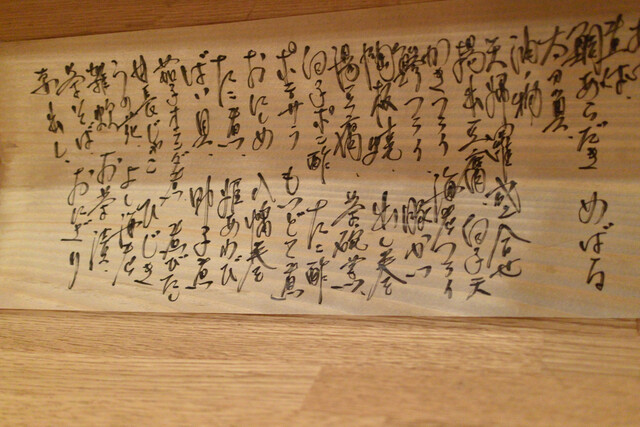 鯛あらだき めばる
太刀魚
油物
天婦羅盛合せ
揚出豆腐 白子天
かきフライ 海老フライ
鯵フライ 豚かつ
陶板焼 出し巻
揚豆腐 茶碗蒸
白子ポン酢 たこ酢
ポテサラ もつどて煮
おにしめ 八幡巻
たこ煮 姫あわび
ばい貝 鯛子煮
茄子オランダ煮 煮びたし
ひじき
うの花
雑炊 お茶漬
茶そば おにぎり